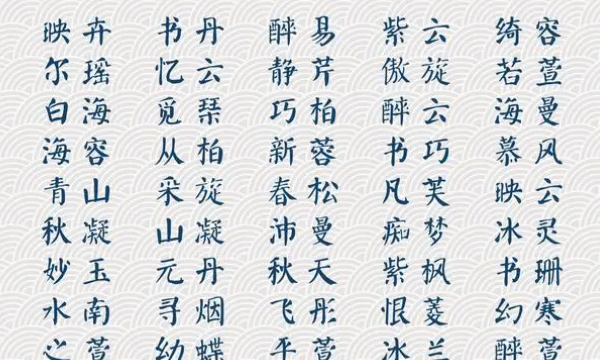 映卉 书丹 醉易 紫云 绮容
尔瑶 忆云 静芹 傲旋 若萱
白海 觅琹 巧柏 醉云 海曼
海容 从柏 新蓉 书巧 慕风
青山 采旋 春松 凡芙 映云
秋凝 山凝 沛曼 痴梦 冰灵
妙玉 元丹 秋天 紫枫 书珊
水南 寻烟 飞彤 恨菱 幻寒
之萱 幼蝶 平萱 冰兰 醉萱